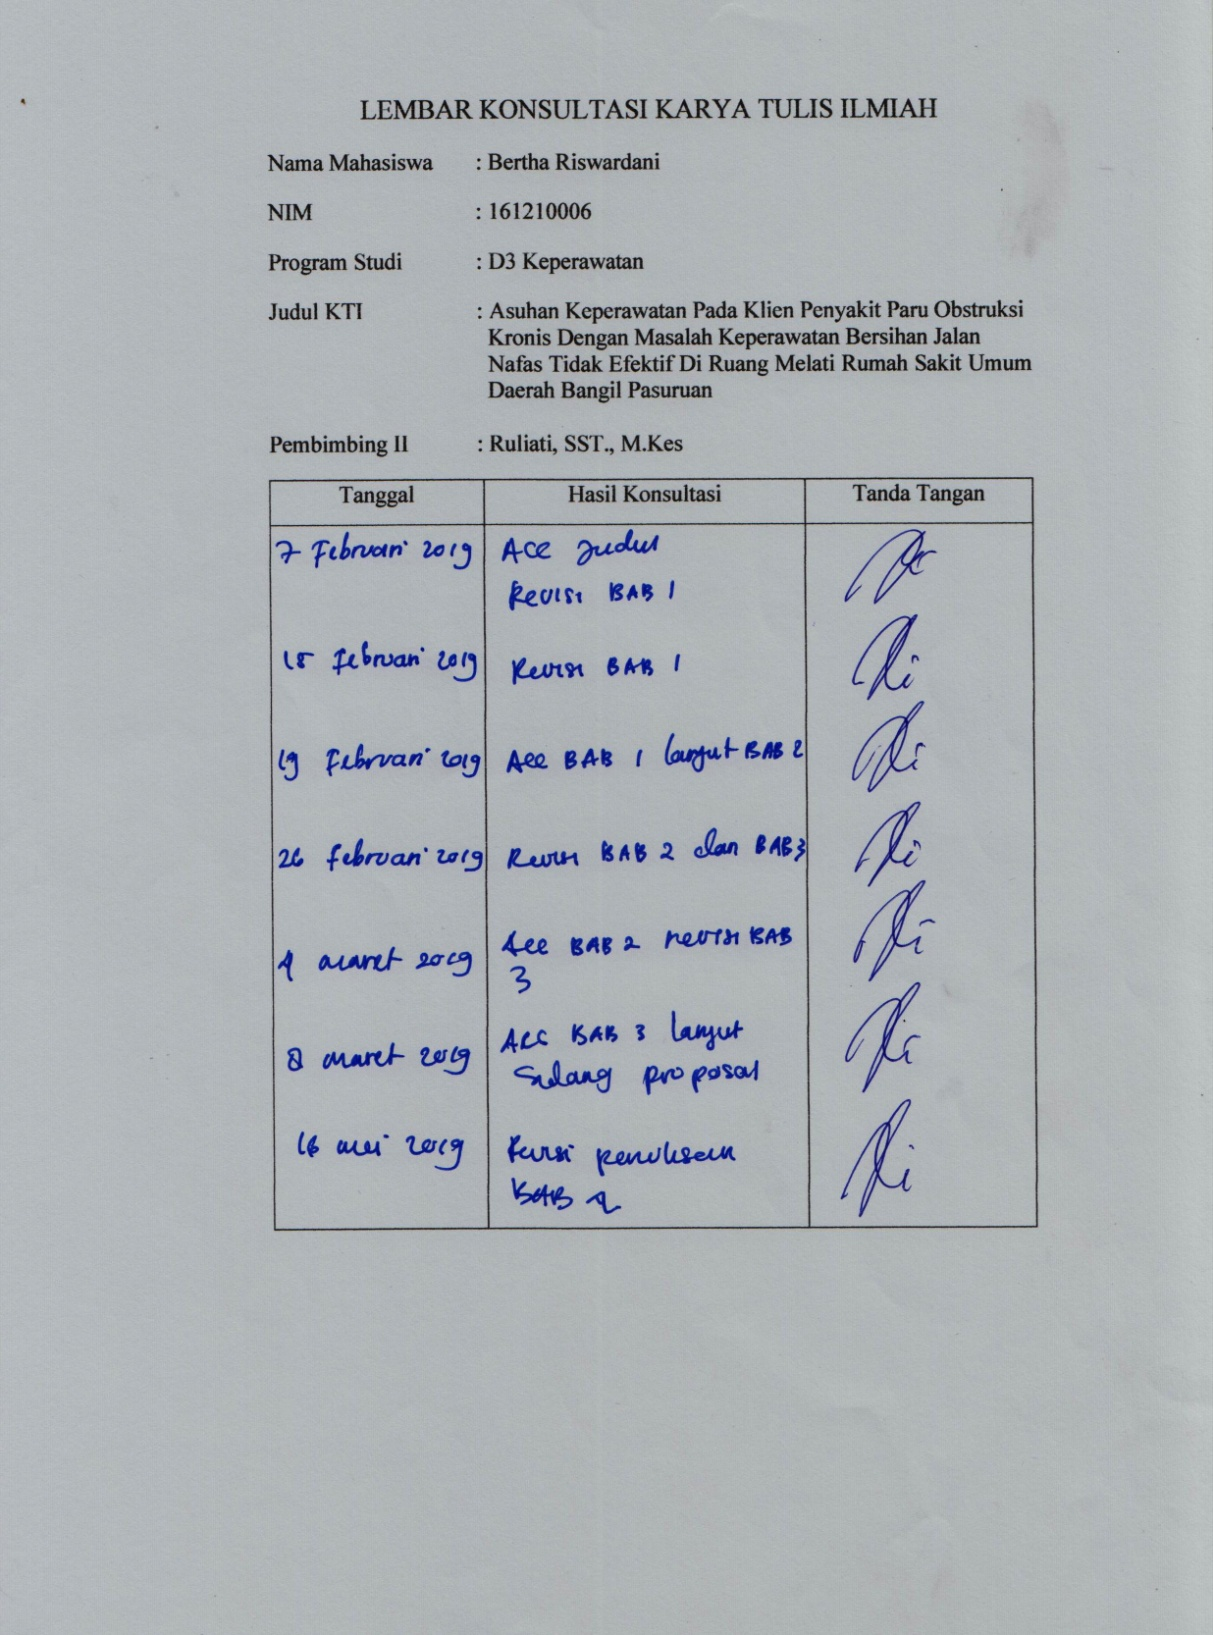 LEMBAR KONSULTASI KARYA TULIS ILMIAH
Nama Mahasiswa : Bertha Riswardani
NIM : 161210006
Program Studi : D3 Keperawatan
Judul KTI : Asuhan Keperawatan Pada Klien Penyakit Paru Obstruksi
Kronis Dengan Masalah Keperawatan Bersihan Jalan
Nafas Tidak Efektif Di Ruang Melati Rumah Sakit Umum
Daerah Bangil Pasuruan
Pembimbing II : Ruliati, SST., M.Kes
Tanggal Hasil Konsultasi Tanda Tangan
7 Februari 2019 Acc Judul
Revisi BAB 1
15 Februari 2019 Revisi BAB 1
19 Februari 2019 Acc BAB 1 lanjut BAB 2
26 februari 2019 Revisi BAB 2 dan BAB 3
4 maret 2019 Acc BAB 2 revisi BAB
3
8 maret 2019 Acc BAB 3 lanjut
Sidang proposal
16 mei 2019 penulisan
BAB 4